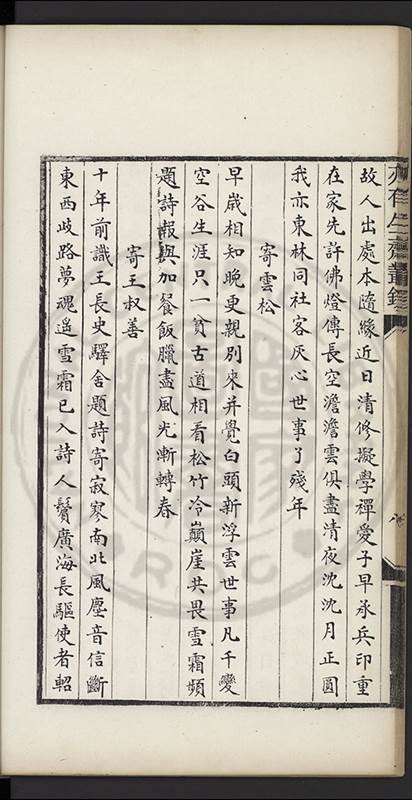 故人出處本隨緣近日清修擬學禪愛子早承兵印重
在家先許佛燈傳長空澹澹雲俱盡清夜沈沈月正圓
我亦東林同社客灰心世事了殘年
寄雲松
早歲相知晚更親別來并覺白頭新浮雲世事凡千變
空谷生涯只一貧古道相看松竹冷巔崖共畏雪霜頻
題詩報與加餐飯臘盡風光漸轉春
寄王叔善
十年前識王長史驛舍題詩寄寂寥南北風塵音信斷
東西歧路夢魂遙雪霜已入詩人鬢廣海長驅使者軺